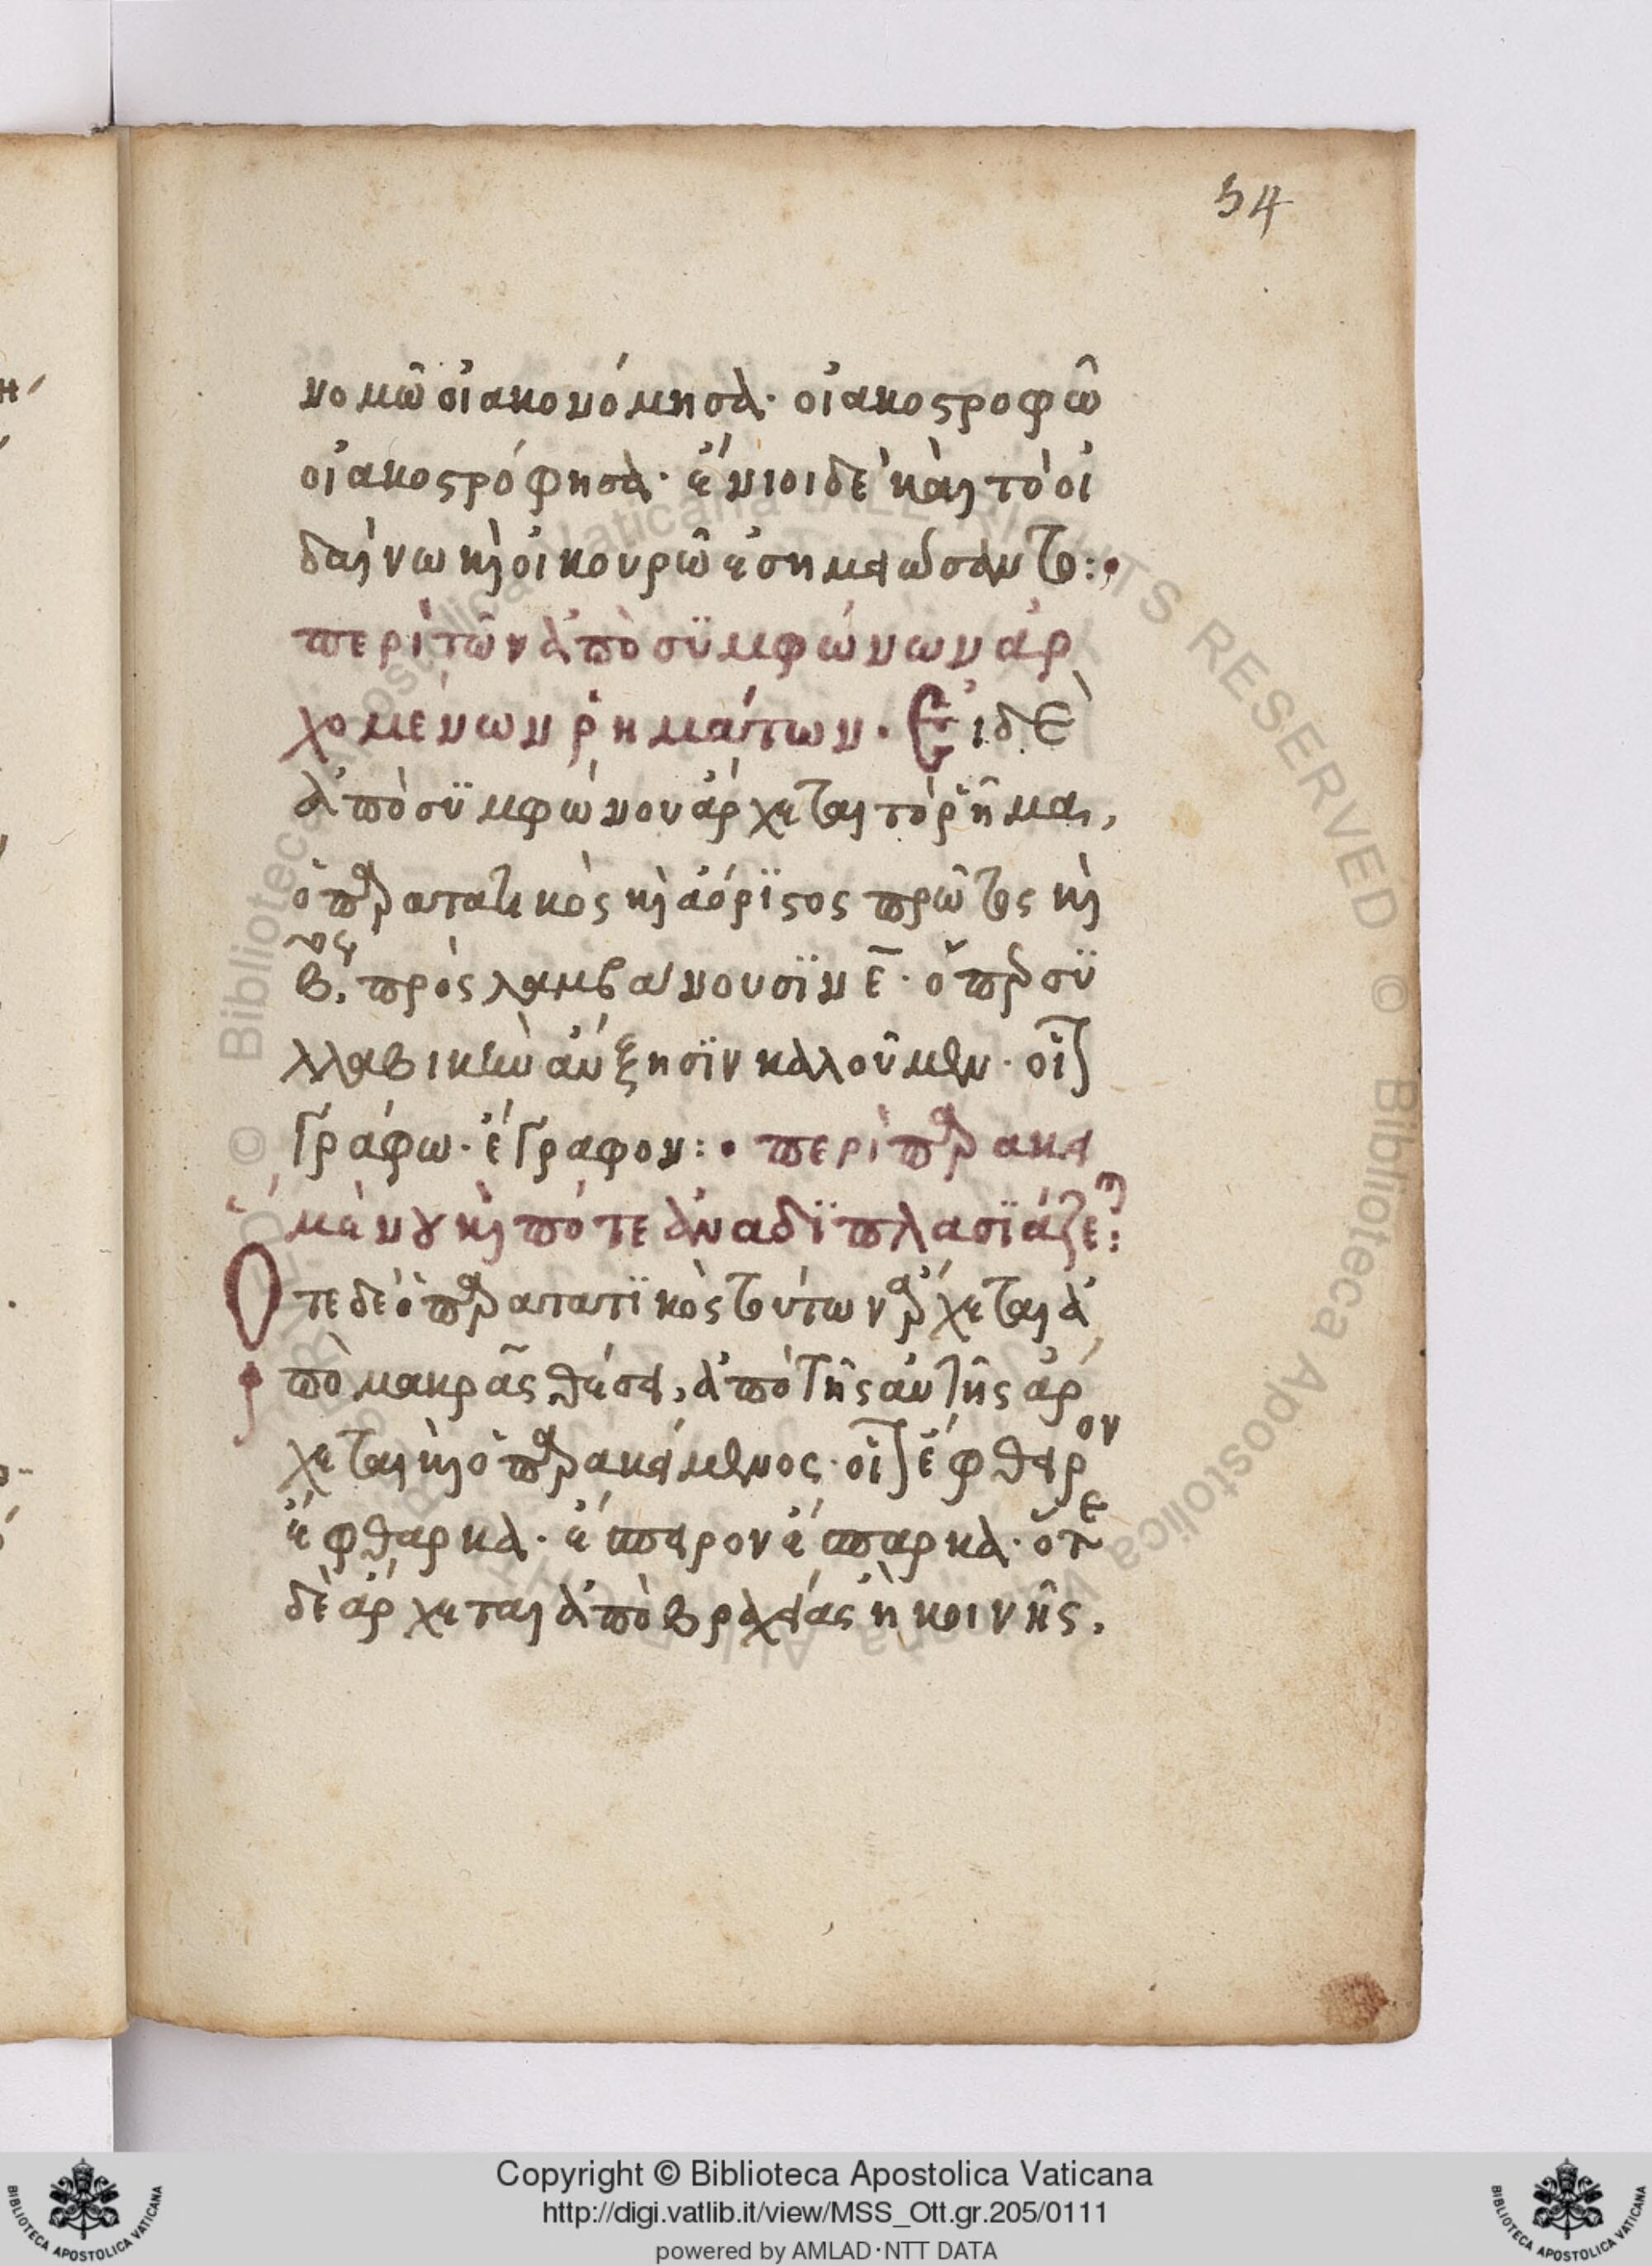 54
νομῶ οἰακονόμησα· οἰακοστροφῶ
οἰακοστρόφησα· ἔνιοι δὲ καὶ τὸ οἰ
δαίνω καὶ οἰκουρῶ ἐσημειώσαντο:
περὶ τῶν ἀπὸ συμφώνων ἀρ
χομένων ῥημάτων. Εἰ δὲ
ἀπὸ συμφώνου ἄρχεται τὸ ῥῆμα,
ὁ παρατατικὸς καὶ ἀόριστος πρῶτος καὶ
βος, προςλαμβάνουσιν ε̄· ὅπερ συ
λλαβικὴν αὔξησιν καλοῦμεν· οἷον
γράφω· ἔγραφον: περὶ παρακει
μένου καὶ πότε ἀναδιπλασιάζεται:
Ὅτε δὲ ὁ παρατατικὸς τούτων ἄρχεται ἀ
πὸ μακρᾶς θέσει, ἀπὸ τῆς αὐτῆς ἄρ
χεται καὶ ὁ παρακείμενος· οἷον ἔφθειρον
ἔφθαρκα· ἔσπειρον ἔσπαρκα· ὅτε
δὲ ἄρχεται ἀπὸ βραχείας ἢ κοινῆς,
Copyright © Biblioteca Apostolica Vaticana
http://digi.vatlib.it/view/MSS_Ott.gr.205/0111
powered by AMLAD·NTT DATA
BIBLIOTECA APOSTOLICA VATICANA
BIBLIOTECA APOSTOLICA VATICANA